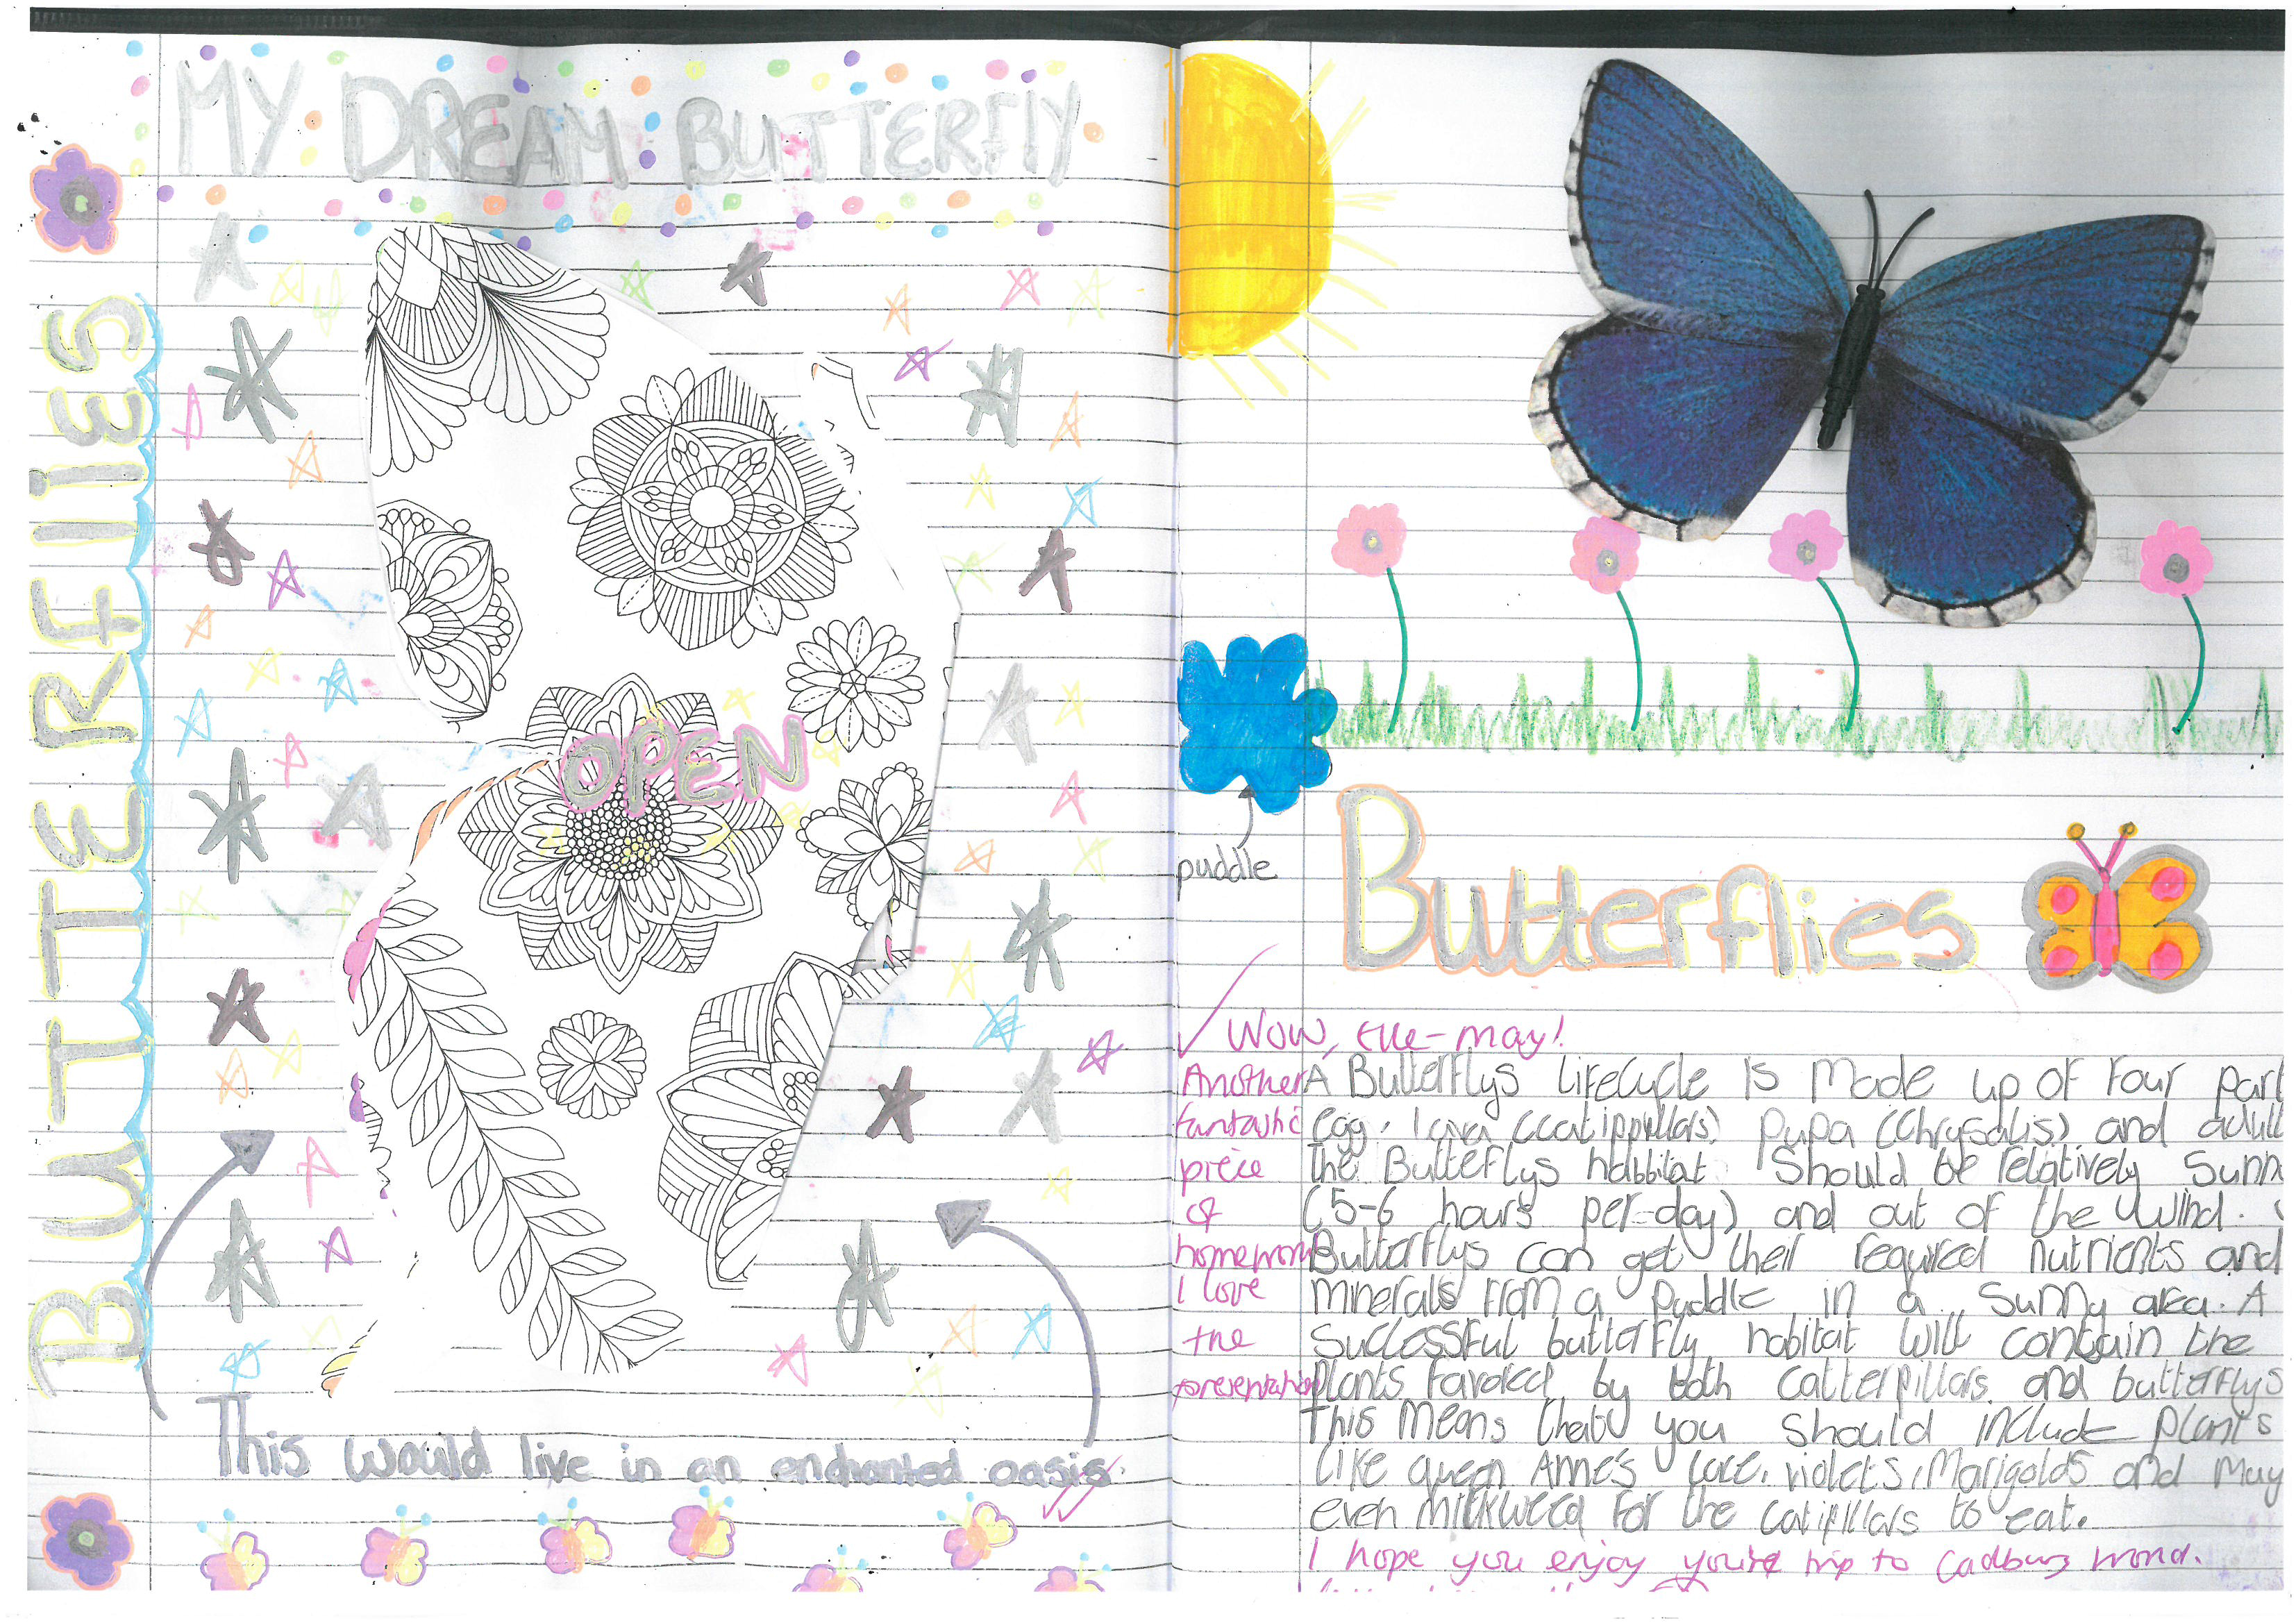 MY DREAM BUTTERFlY
BUTTERFlIES
OPEN
This would live in an enchanted oasis.
puddle
Butterflies
Wow, Elle-may!
Another
fantastic
piece
of
homework
I love
the
presentation
A Butterflys lifecycle is made up of four part
egg, larva (catippillars), pupa (chrysalis) and adult
the Butterflys habbitat should be relatively sunn
(5-6 hours per-day) and out of the wind.
Butterflys can get their required nutrients and
minerals from a puddle in a sunny area. A
successful butterfly habitat will contain the
plants favored by both catterpillars and butterflys
This means that you should include plants
like queen Anne's lace, violets, Marigolds and may
even milkweed for the catipillars to eat.
I hope you enjoy your trip to Cadbury world.